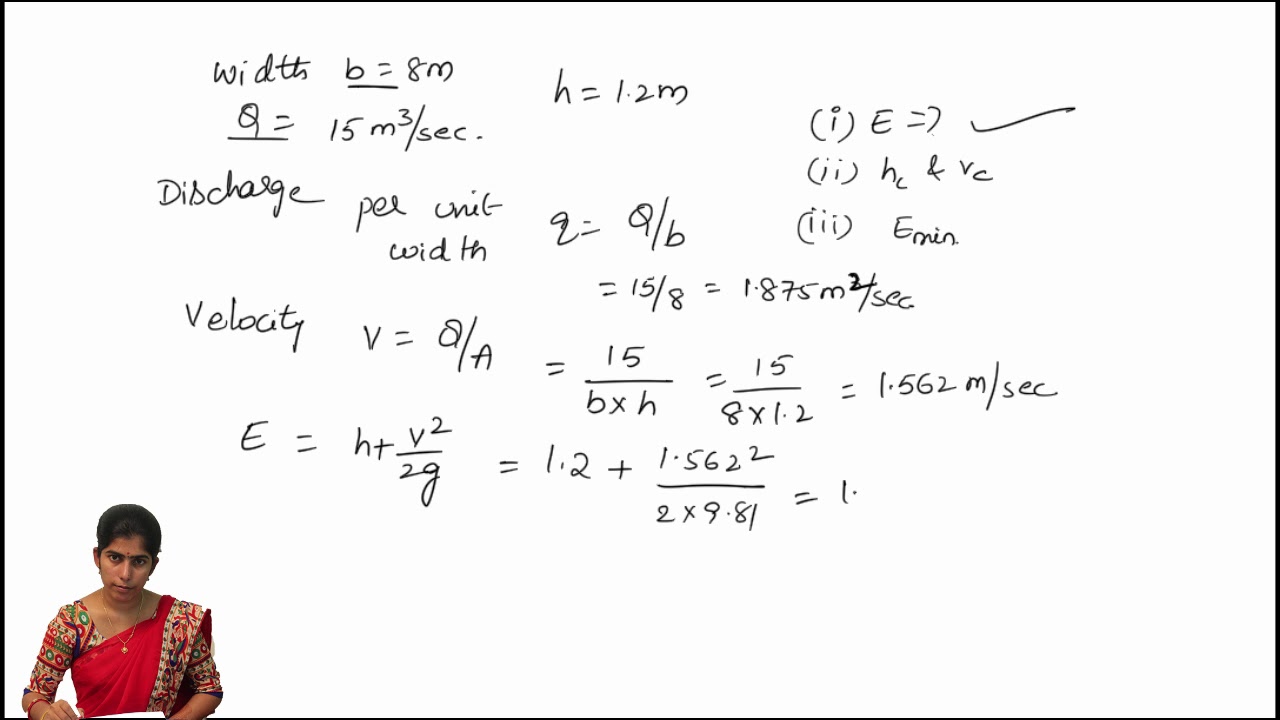 width b = 8m
h = 1.2m
Q = 15 m³/sec.
(i) E =>?
(ii) hc & vc
(iii) Emin.
Discharge per unit width q = Q/b
= 15/8 = 1.875 m²/sec.
Velocity V = Q/A = 15/b×h = 15/8×1.2 = 1.562 m/sec
E = h+V²/2g = 1.2 + 1.562²/2×9.81 = 1.